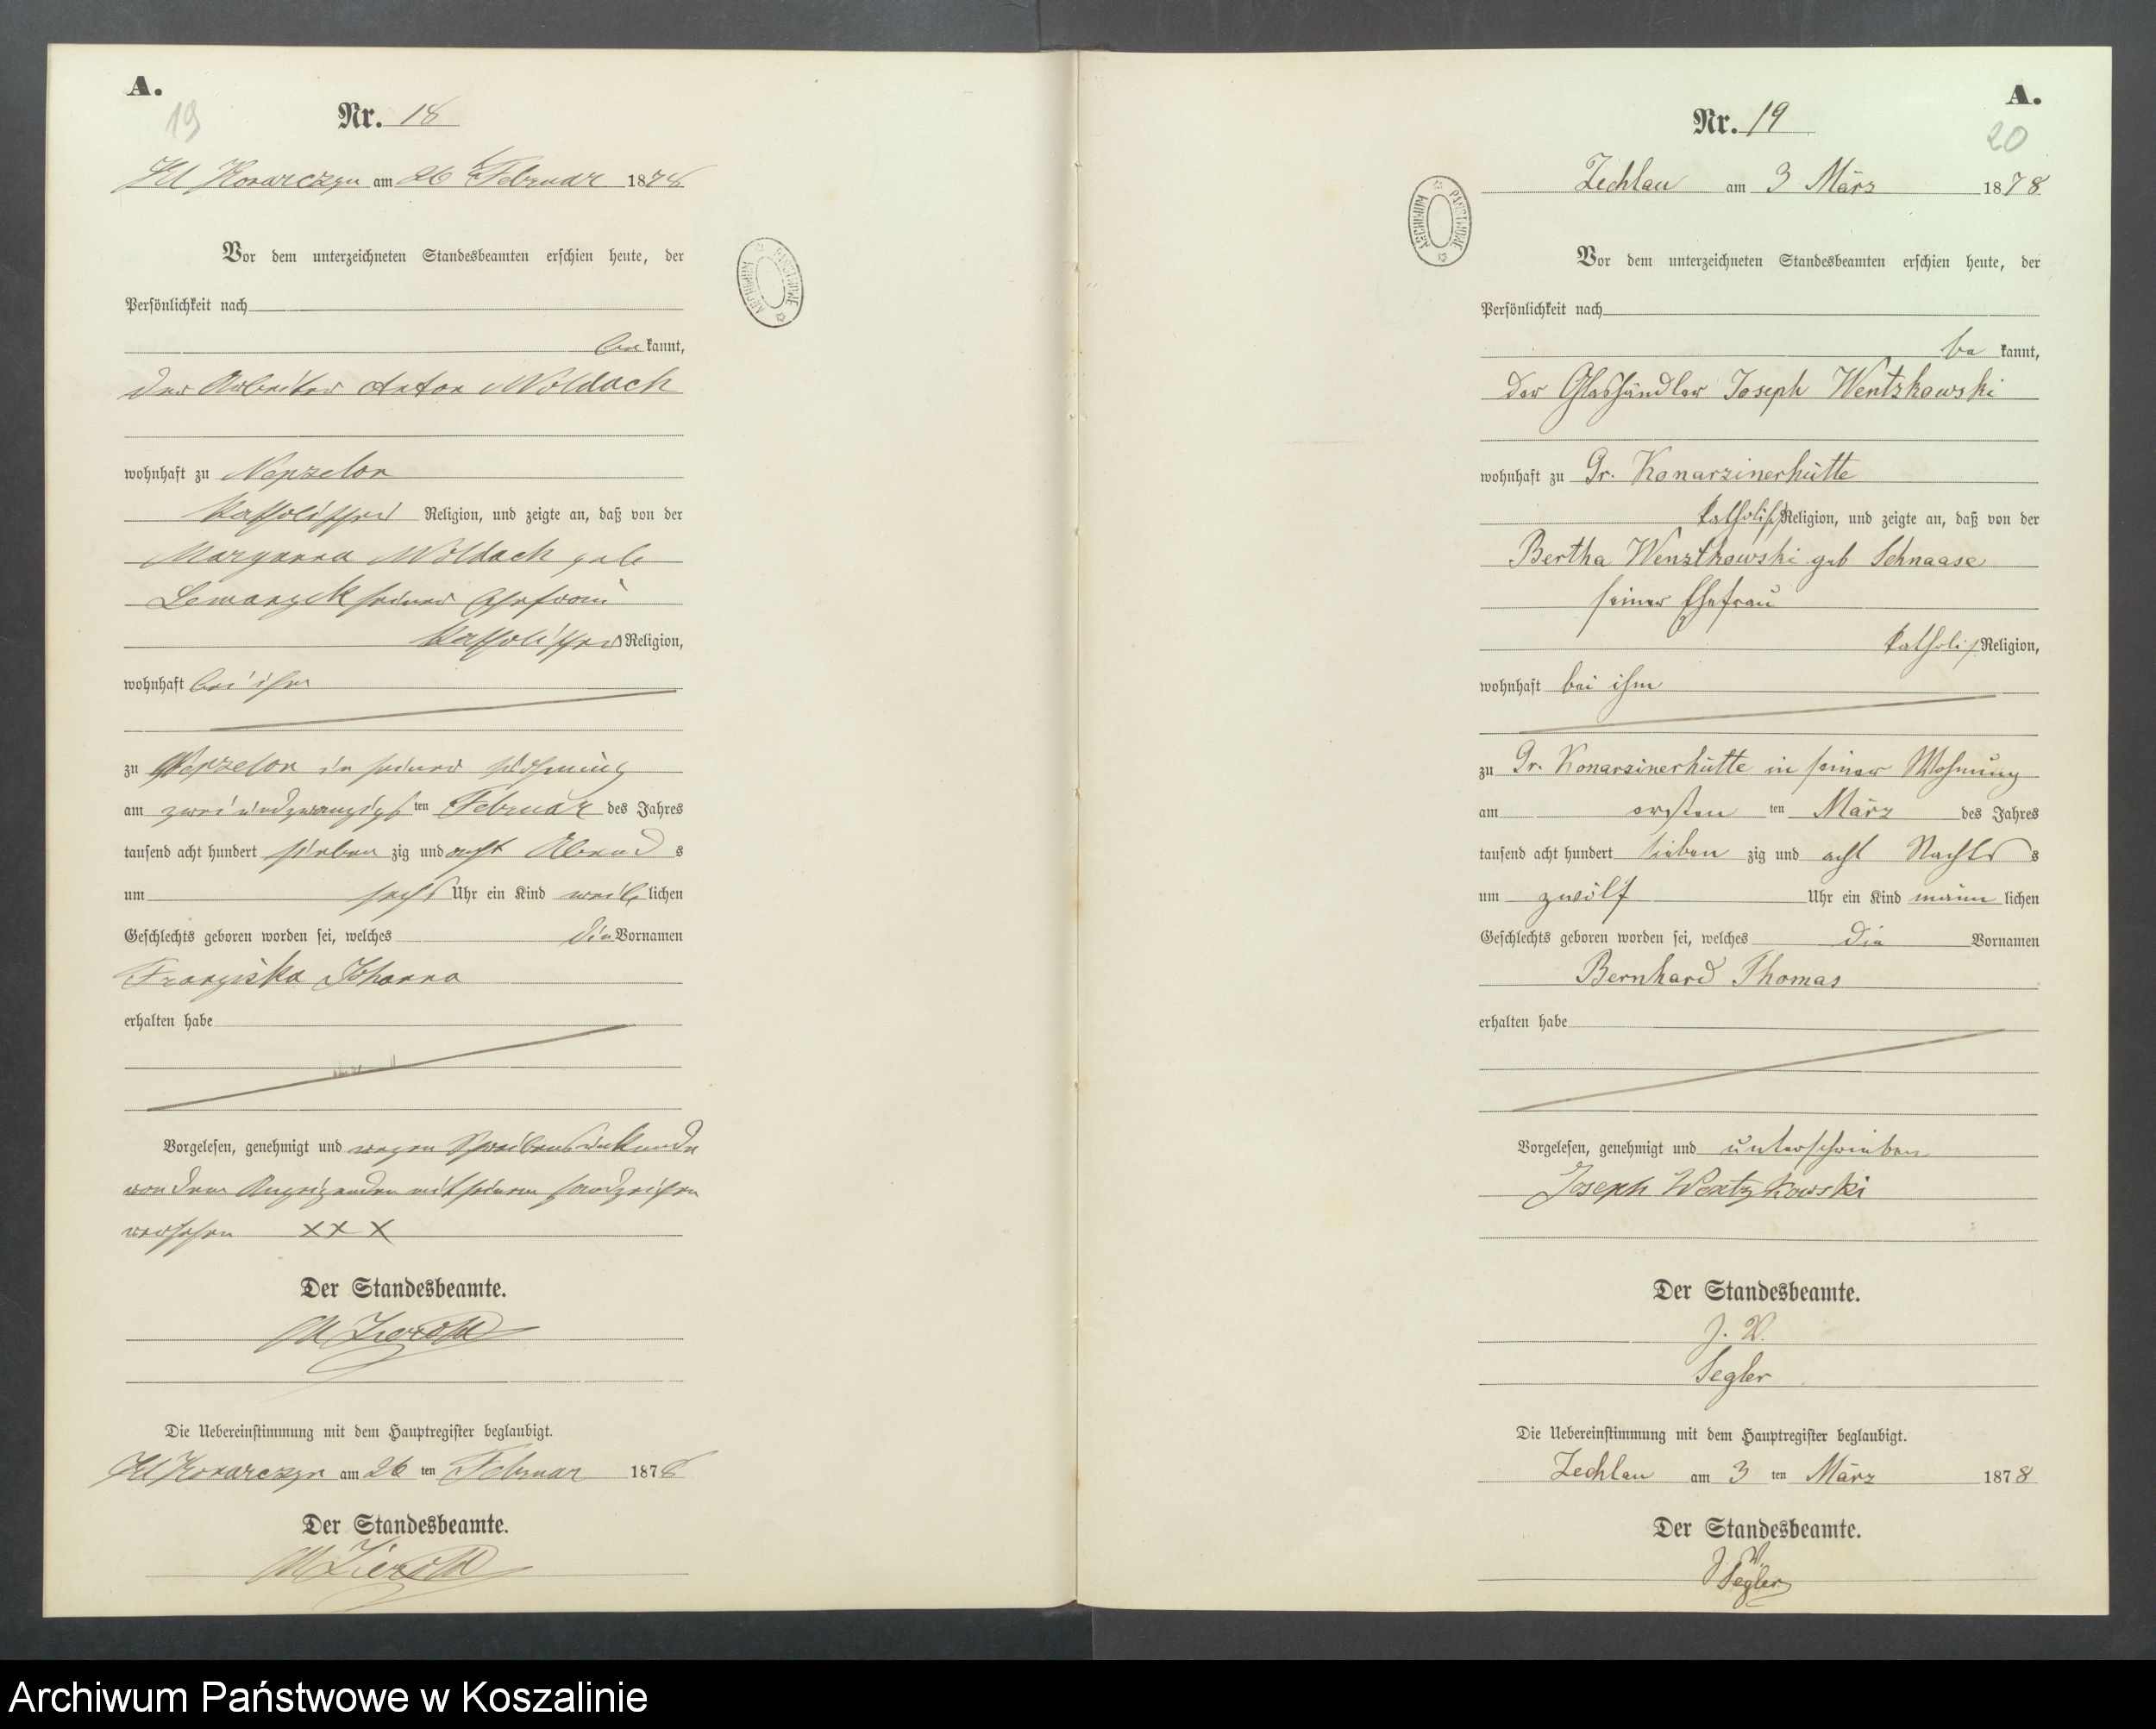 A.
19
Nr. 18
Kl Konarczyn am 26 Februar 1878
Vor dem unterzeichneten Standesbeamten erschien heute, der
Persönlichkeit nach
be kannt,
der Arbeiter Anton Woldach
wohnhaft zu Nepzelon
katholischer Religion, und zeigte an, daß von der
Maryanna Woldach geb
seiner Ehefrau
katholischer Religion,
wohnhaft bei ihm
zu Nepzelon in seiner Wohnung
am zwei und zwanzigs ten Februar des Jahres
tausend acht hundert sieben zig und acht Abend s
um sechs Uhr ein Kind weib lichen
Geschlechts geboren worden sei, welches die Vornamen
Franziska Johanna
erhalten habe
Vorgelesen, genehmigt und wegen Schreibensunkunde
von dem Anzeigenden mit seinem Handzeichen
versehen XXX
Der Standesbeamte.
Die Uebereinstimmung mit dem Hauptregister beglaubigt.
Kl Konarczyn am 26 ten Februar 1878
Der Standesbeamte.
ARCHIWUM PAŃSTWOWE
A.
20
Nr. 19
Zechlau am 3 März 1878
Vor dem unterzeichneten Standesbeamten erschien heute, der
Persönlichkeit nach
be kannt,
der Glashändler Joseph Wentzkowski
wohnhaft zu Gr. Konarzinerhütte
katholisch Religion, und zeigte an, daß von der
Bertha Wenzlkowski geb Schnaase
seiner Ehefrau
katholisch Religion,
wohnhaft bei ihm
zu Gr. Konarzinerhütte in seiner Wohnung
am ersten ten März des Jahres
tausend acht hundert sieben zig und acht Nachts s
um zwölf Uhr ein Kind männ lichen
Geschlechts geboren worden sei, welches die Vornamen
Bernhard Thomas
erhalten habe
Vorgelesen, genehmigt und unterschrieben
Joseph Wentzkowski
Der Standesbeamte.
J. V.
Segler
Die Uebereinstimmung mit dem Hauptregister beglaubigt.
Zechlau am 3 ten März 1878
Der Standesbeamte.
J. V.
Segler
ARCHIWUM PAŃSTWOWE
Archiwum Państwowe w Koszalinie